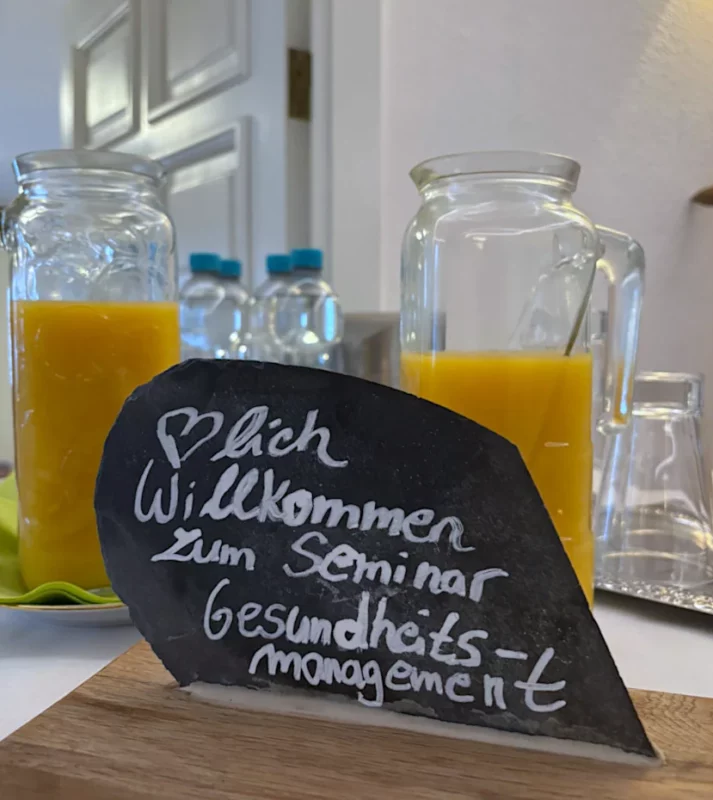 ♡lich
Willkommen
zum Seminar
Gesundheits-
management